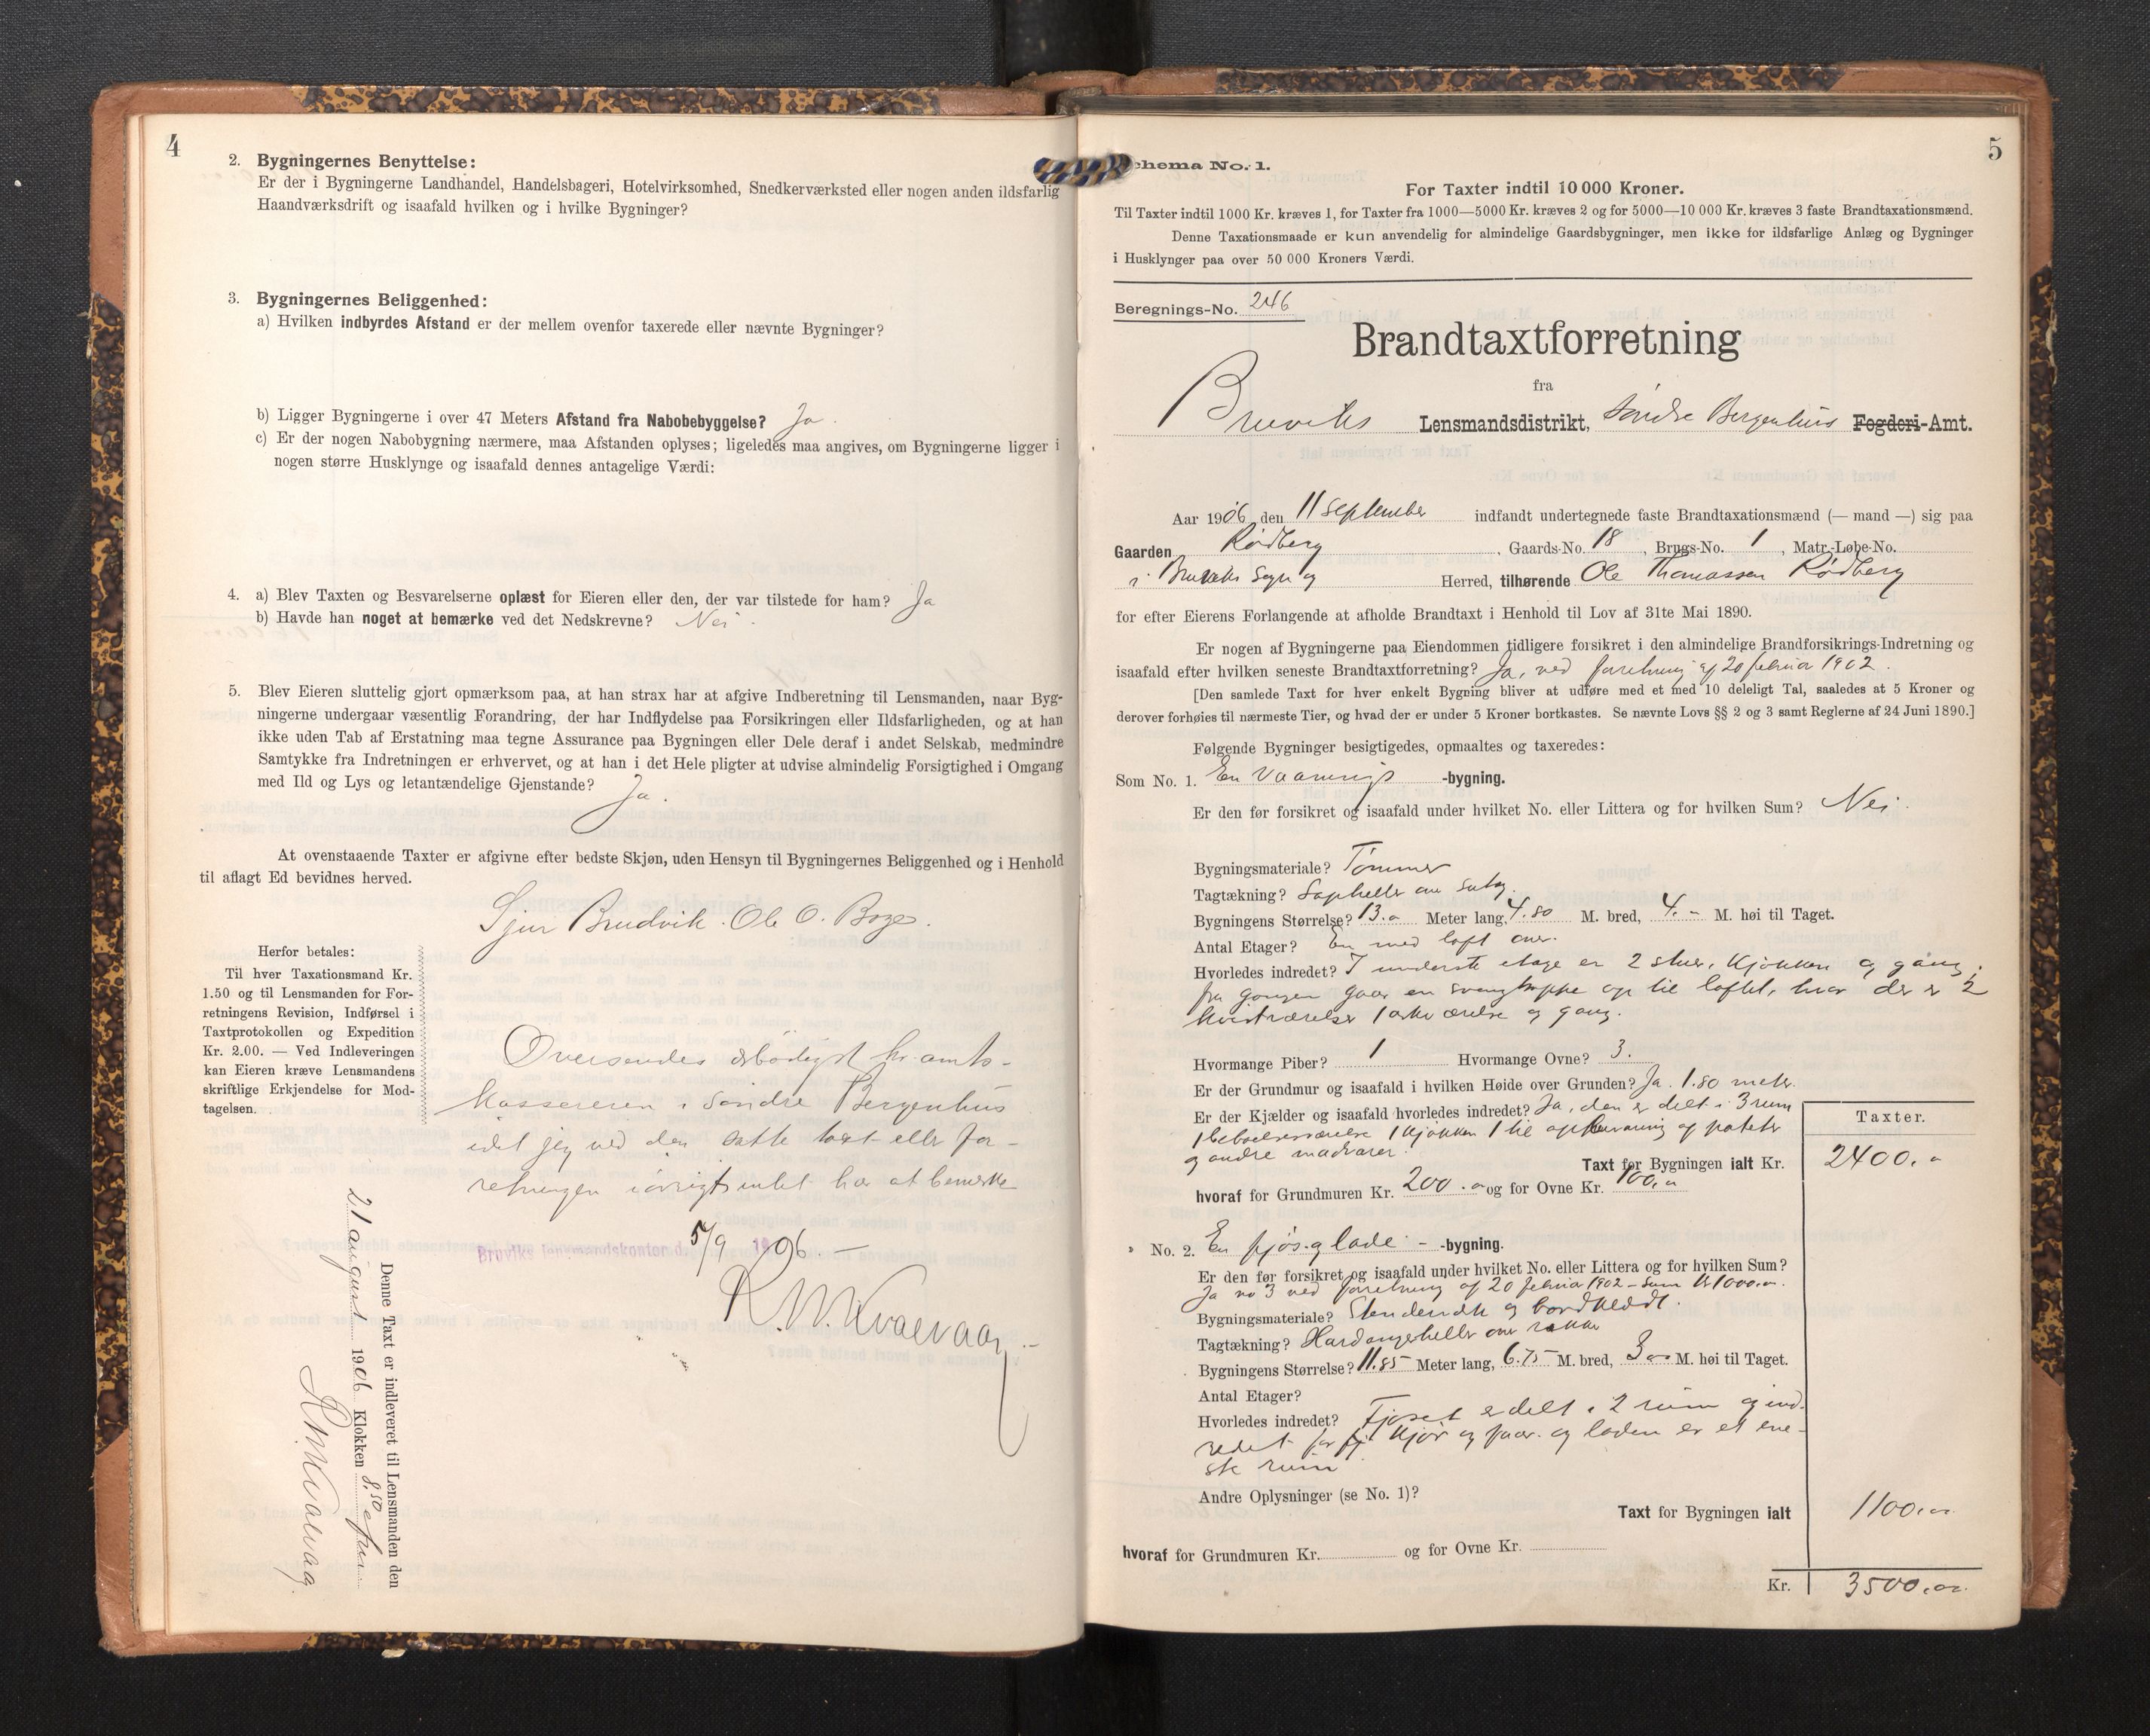 4
2. Bygningernes Benyttelse:
Er der i Bygningerne Landhandel, Handelsbageri, Hotelvirksomhed, Snedkerværksted eller nogen anden ildsfarlig
Haandværksdrift og isaafald hvilken og i hvilke Bygninger?
3. Bygningernes Beliggenhed:
a) Hvilken indbyrdes Afstand er der mellem ovenfor taxerede eller nævnte Bygninger?
b) Ligger Bygningerne i over 47 Meters Afstand fra Nabobebyggelse? Ja.
c) Er der nogen Nabobygning nærmere, maa Afstanden oplyses; ligeledes maa angives, om Bygningerne ligger i
nogen større Husklynge og isaafald dennes antagelige Værdi:
4. a) Blev Taxten og Besvarelserne oplæst for Eieren eller den, der var tilstede for ham? Ja
b) Havde han noget at bemærke ved det Nedskrevne? Nei.
5. Blev Eieren sluttelig gjort opmærksom paa, at han strax har at afgive Indberetning til Lensmanden, naar Byg-
ningerne undergaar væsentlig Forandring, der har Indflydelse paa Forsikringen eller Ildsfarligheden, og at han
ikke uden Tab af Erstatning maa tegne Assurance paa Bygningen eller Dele deraf i andet Selskab, medmindre
Samtykke fra Indretningen er erhvervet, og at han i det Hele pligter at udvise almindelig Forsigtighed i Omgang
med Ild og Lys og letantændelige Gjenstande? Ja.
At ovenstaaende Taxter er afgivne efter bedste Skjøn, uden Hensyn til Bygningernes Beliggenhed og i Henhold
til aflagt Ed bevidnes herved.
Sjur Brudvik. Ole O. Boge.
Herfor betales:
Til hver Taxationsmand Kr.
1.50 og til Lensmanden for For-
retningens Revision, Indførsel i
Taxtprotokollen og Expedition
Kr. 2.00. — Ved Indleveringen
kan Eieren kræve Lensmandens
skriftlige Erkjendelse for Mod-
tagelsen.
Oversendes ærbødigst hr. amts-
kassereren i Søndre Bergenhus
idet jeg ved den satte taxt eller for-
retningen iøvrigt intet har at bemærke
Bruviks lensmandskontor d. 5/9 1906. —
K. M. Kvalvaag
Denne Taxt er indleveret til Lensmanden den
21 august 1906 Klokken 8.50
K. M. Kvalvaag
5
chema No. 1.
For Taxter indtil 10 000 Kroner.
Til Taxter indtil 1000 Kr. kræves 1, for Taxter fra 1000—5000 Kr. kræves 2 og for 5000—10 000 Kr. kræves 3 faste Brandtaxationsmænd.
Denne Taxationsmaade er kun anvendelig for almindelige Gaardsbygninger, men ikke for ildsfarlige Anlæg og Bygninger
i Husklynger paa over 50 000 Kroners Værdi.
Beregnings-No. 246
Brandtaxtforretning
fra
Bruviks Lensmandsdistrikt, Søndre Bergenhus Fogderi-Amt.
Aar 1906 den 11 September indfandt undertegnede faste Brandtaxationsmænd (— mand —) sig paa
Gaarden Rødberg, Gaards-No. 18, Brugs-No. 1, Matr.-Løbe-No.
i Bruviks Sogn og Herred, tilhørende Ole Thomassen Rødberg
for efter Eierens Forlangende at afholde Brandtaxt i Henhold til Lov af 31te Mai 1890.
Er nogen af Bygningerne paa Eiendommen tidligere forsikret i den almindelige Brandforsikrings-Indretning og
isaafald efter hvilken seneste Brandtaxtforretning? Ja, ved forretning af 20 februar 1902.
[Den samlede Taxt for hver enkelt Bygning bliver at udføre med et med 10 deleligt Tal, saaledes at 5 Kroner og
derover forhøies til nærmeste Tier, og hvad der er under 5 Kroner bortkastes. Se nævnte Lovs §§ 2 og 3 samt Reglerne af 24 Juni 1890.]
Følgende Bygninger besigtigedes, opmaaltes og taxeredes:
Som No. 1. En Vaanings -bygning.
Er den før forsikret og isaafald under hvilket No. eller Littera og for hvilken Sum? Nei.
Bygningsmateriale? Tømmer
Tagtækning? heller over
Bygningens Størrelse? 13.- Meter lang, 4.80 M. bred, 4.- M. høi til Taget.
Antal Etager? En med loft over.
Hvorledes indredet? I underste etage er 2 stuer, kjøkken og gang;
fra gangen gaar en svingtrappe op til loftet, hvor der er 2
kvistværelser 1 værelse og gang.
Hvormange Piber? 1 Hvormange Ovne? 3.
Er der Grundmur og isaafald i hvilken Høide over Grunden? Ja. 1.80 meter.
Er der Kjælder og isaafald hvorledes indredet? Ja, den er delt i 3 rum
1 beboelsesværelse 1 kjøkken 1 til opbevaring af poteter
og andre madvarer.
Taxter.
Taxt for Bygningen ialt Kr. 2400.-
hvoraf for Grundmuren Kr. 200.- og for Ovne Kr. 100.-
No. 2. En fjøs og lade - -bygning.
Er den før forsikret og isaafald under hvilket No. eller Littera og for hvilken Sum?
Ja no 3 ved forretning af 20 februar 1902 - sum Kr 1000.-
Bygningsmateriale? Stenderværk og bordklædt.
Tagtækning? Hardangerheller over
Bygningens Størrelse? 11.85 Meter lang, 6.75 M. bred, 3.- M. høi til Taget.
Antal Etager?
Hvorledes indredet? Fjøset er delt i 2 rum og ind-
redet for kjør og faar. og laden er et ene-
ste rum
Andre Oplysninger (se No. 1)?
Taxt for Bygningen ialt 1100.-
hvoraf for Grundmuren Kr. og for Ovne Kr.
Kr. 3500.-